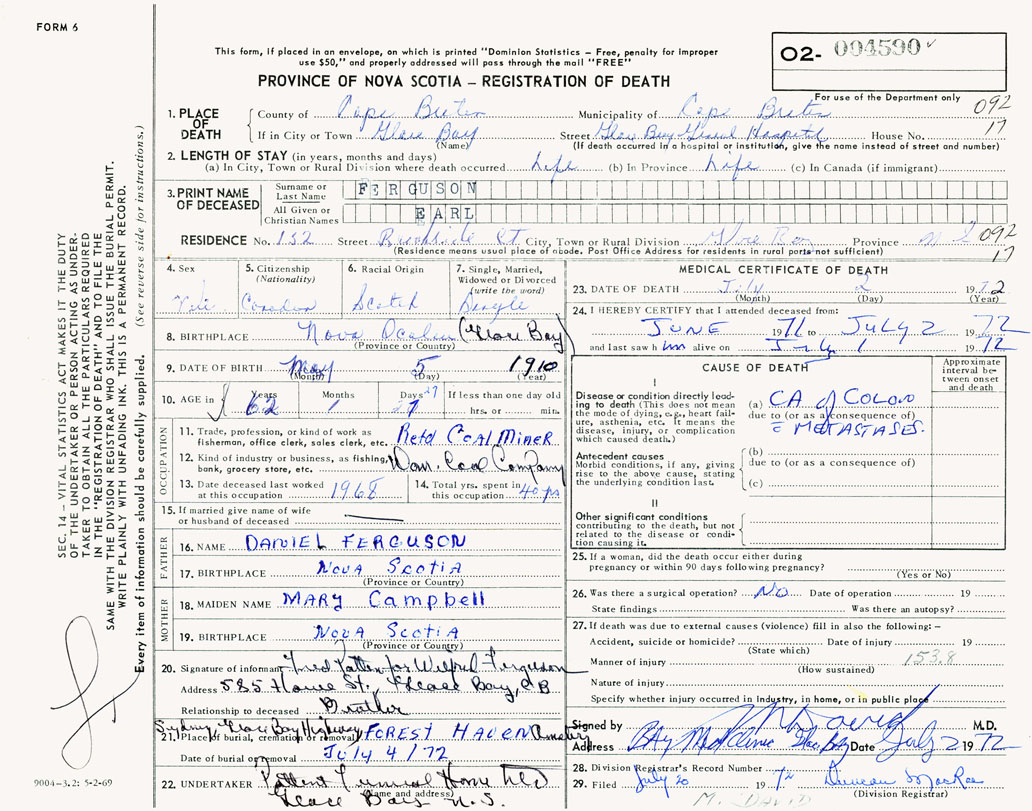 FORM 6
This form, if placed in an envelope, on which is printed "Dominion Statistics – Free, penalty for improper
use $50," and properly addressed will pass through the mail "FREE"
PROVINCE OF NOVA SCOTIA – REGISTRATION OF DEATH
O2- 004590
For use of the Department only
092
17
1. PLACE OF DEATH
County of Cape Breton Municipality of Cape Breton
If in City or Town Glace Bay Street Glace Bay General Hospital House No.
(Name) (If death occurred in a hospital or institution, give the name instead of street and number)
2. LENGTH OF STAY (in years, months and days)
(a) In City, Town or Rural Division where death occurred Life (b) In Province Life (c) In Canada (if immigrant)
3. PRINT NAME OF DECEASED
Surname or Last Name FERGUSON
All Given or Christian Names EARL
RESIDENCE No. 132 Street St City, Town or Rural Division Glace Bay Province N.S. 092
(Residence means usual place of abode. Post Office Address for residents in rural parts not sufficient) 17
4. Sex
5. Citizenship (Nationality) Canadian
6. Racial Origin Scotch
7. Single, Married, Widowed or Divorced (write the word) Single
8. BIRTHPLACE Nova Scotia (Glace Bay)
(Province or Country)
9. DATE OF BIRTH May 5 1910
(Month) (Day) (Year)
10. AGE in Years 62 Months 1 Days 27 27 If less than one day old
hrs. or min.
OCCUPATION
11. Trade, profession, or kind of work as
fisherman, office clerk, sales clerk, etc. Retd Coal Miner
12. Kind of industry or business, as fishing,
bank, grocery store, etc. Dom. Coal Company
13. Date deceased last worked
at this occupation 1968
14. Total yrs. spent in
this occupation 40 yrs
15. If married give name of wife
or husband of deceased
FATHER
16. NAME DANIEL FERGUSON
17. BIRTHPLACE NOVA SCOTIA
(Province or Country)
MOTHER
18. MAIDEN NAME MARY Campbell
19. BIRTHPLACE NOVA SCOTIA
(Province or Country)
20. Signature of informant Fred Patten for Wilfred Ferguson
Address 585 Home St. Glace Bay, CB
Relationship to deceased Brother
Sydney Glace Bay Highway
21. Place of burial, cremation or removal FOREST HAVEN Cemetery
Date of burial or removal July 4/72
22. UNDERTAKER Patten Funeral Home Ltd
(Name and address)
Glace Bay N.S.
MEDICAL CERTIFICATE OF DEATH
23. DATE OF DEATH July 2 1972
(Month) (Day) (Year)
24. I HEREBY CERTIFY that I attended deceased from:
JUNE 1971 to JULY 2 1972
and last saw him alive on July 1 1972
CAUSE OF DEATH
Approximate interval between onset and death
I
Disease or condition directly leading to death (This does not mean the mode of dying, e.g., heart failure, asthenia, etc. It means the disease, injury, or complication which caused death.)
(a) CA of COLON
due to (or as a consequence of)
METASTASES.
Antecedent causes
Morbid conditions, if any, giving rise to the above cause, stating the underlying condition last.
(b)
due to (or as a consequence of)
(c)
II
Other significant conditions
contributing to the death, but not related to the disease or condition causing it.
25. If a woman, did the death occur either during
pregnancy or within 90 days following pregnancy?
(Yes or No)
26. Was there a surgical operation? NO Date of operation 19
State findings Was there an autopsy?
27. If death was due to external causes (violence) fill in also the following:–
Accident, suicide or homicide? Date of injury 19
(State which)
Manner of injury 153.8
(How sustained)
Nature of injury
Specify whether injury occurred in Industry, in home, or in public place
Signed by David M.D.
Address Bay Med Clinic Glace Bay Date July 2 1972
28. Division Registrar's Record Number
29. Filed July 20 1972 Duncan MacRae
(Division Registrar)
M. DAVID
SEC. 14 – VITAL STATISTICS ACT MAKES IT THE DUTY
OF THE UNDERTAKER OR PERSON ACTING AS UNDER-
TAKER TO OBTAIN ALL THE PARTICULARS REQUIRED
IN THE "REGISTRATION OF DEATH" AND TO FILE THE
SAME WITH THE DIVISION REGISTRAR WHO SHALL ISSUE THE BURIAL PERMIT.
WRITE PLAINLY WITH UNFADING INK. THIS IS A PERMANENT RECORD.
Every item of information should be carefully supplied. (See reverse side for instructions.)
9004-3.2: 5-2-69